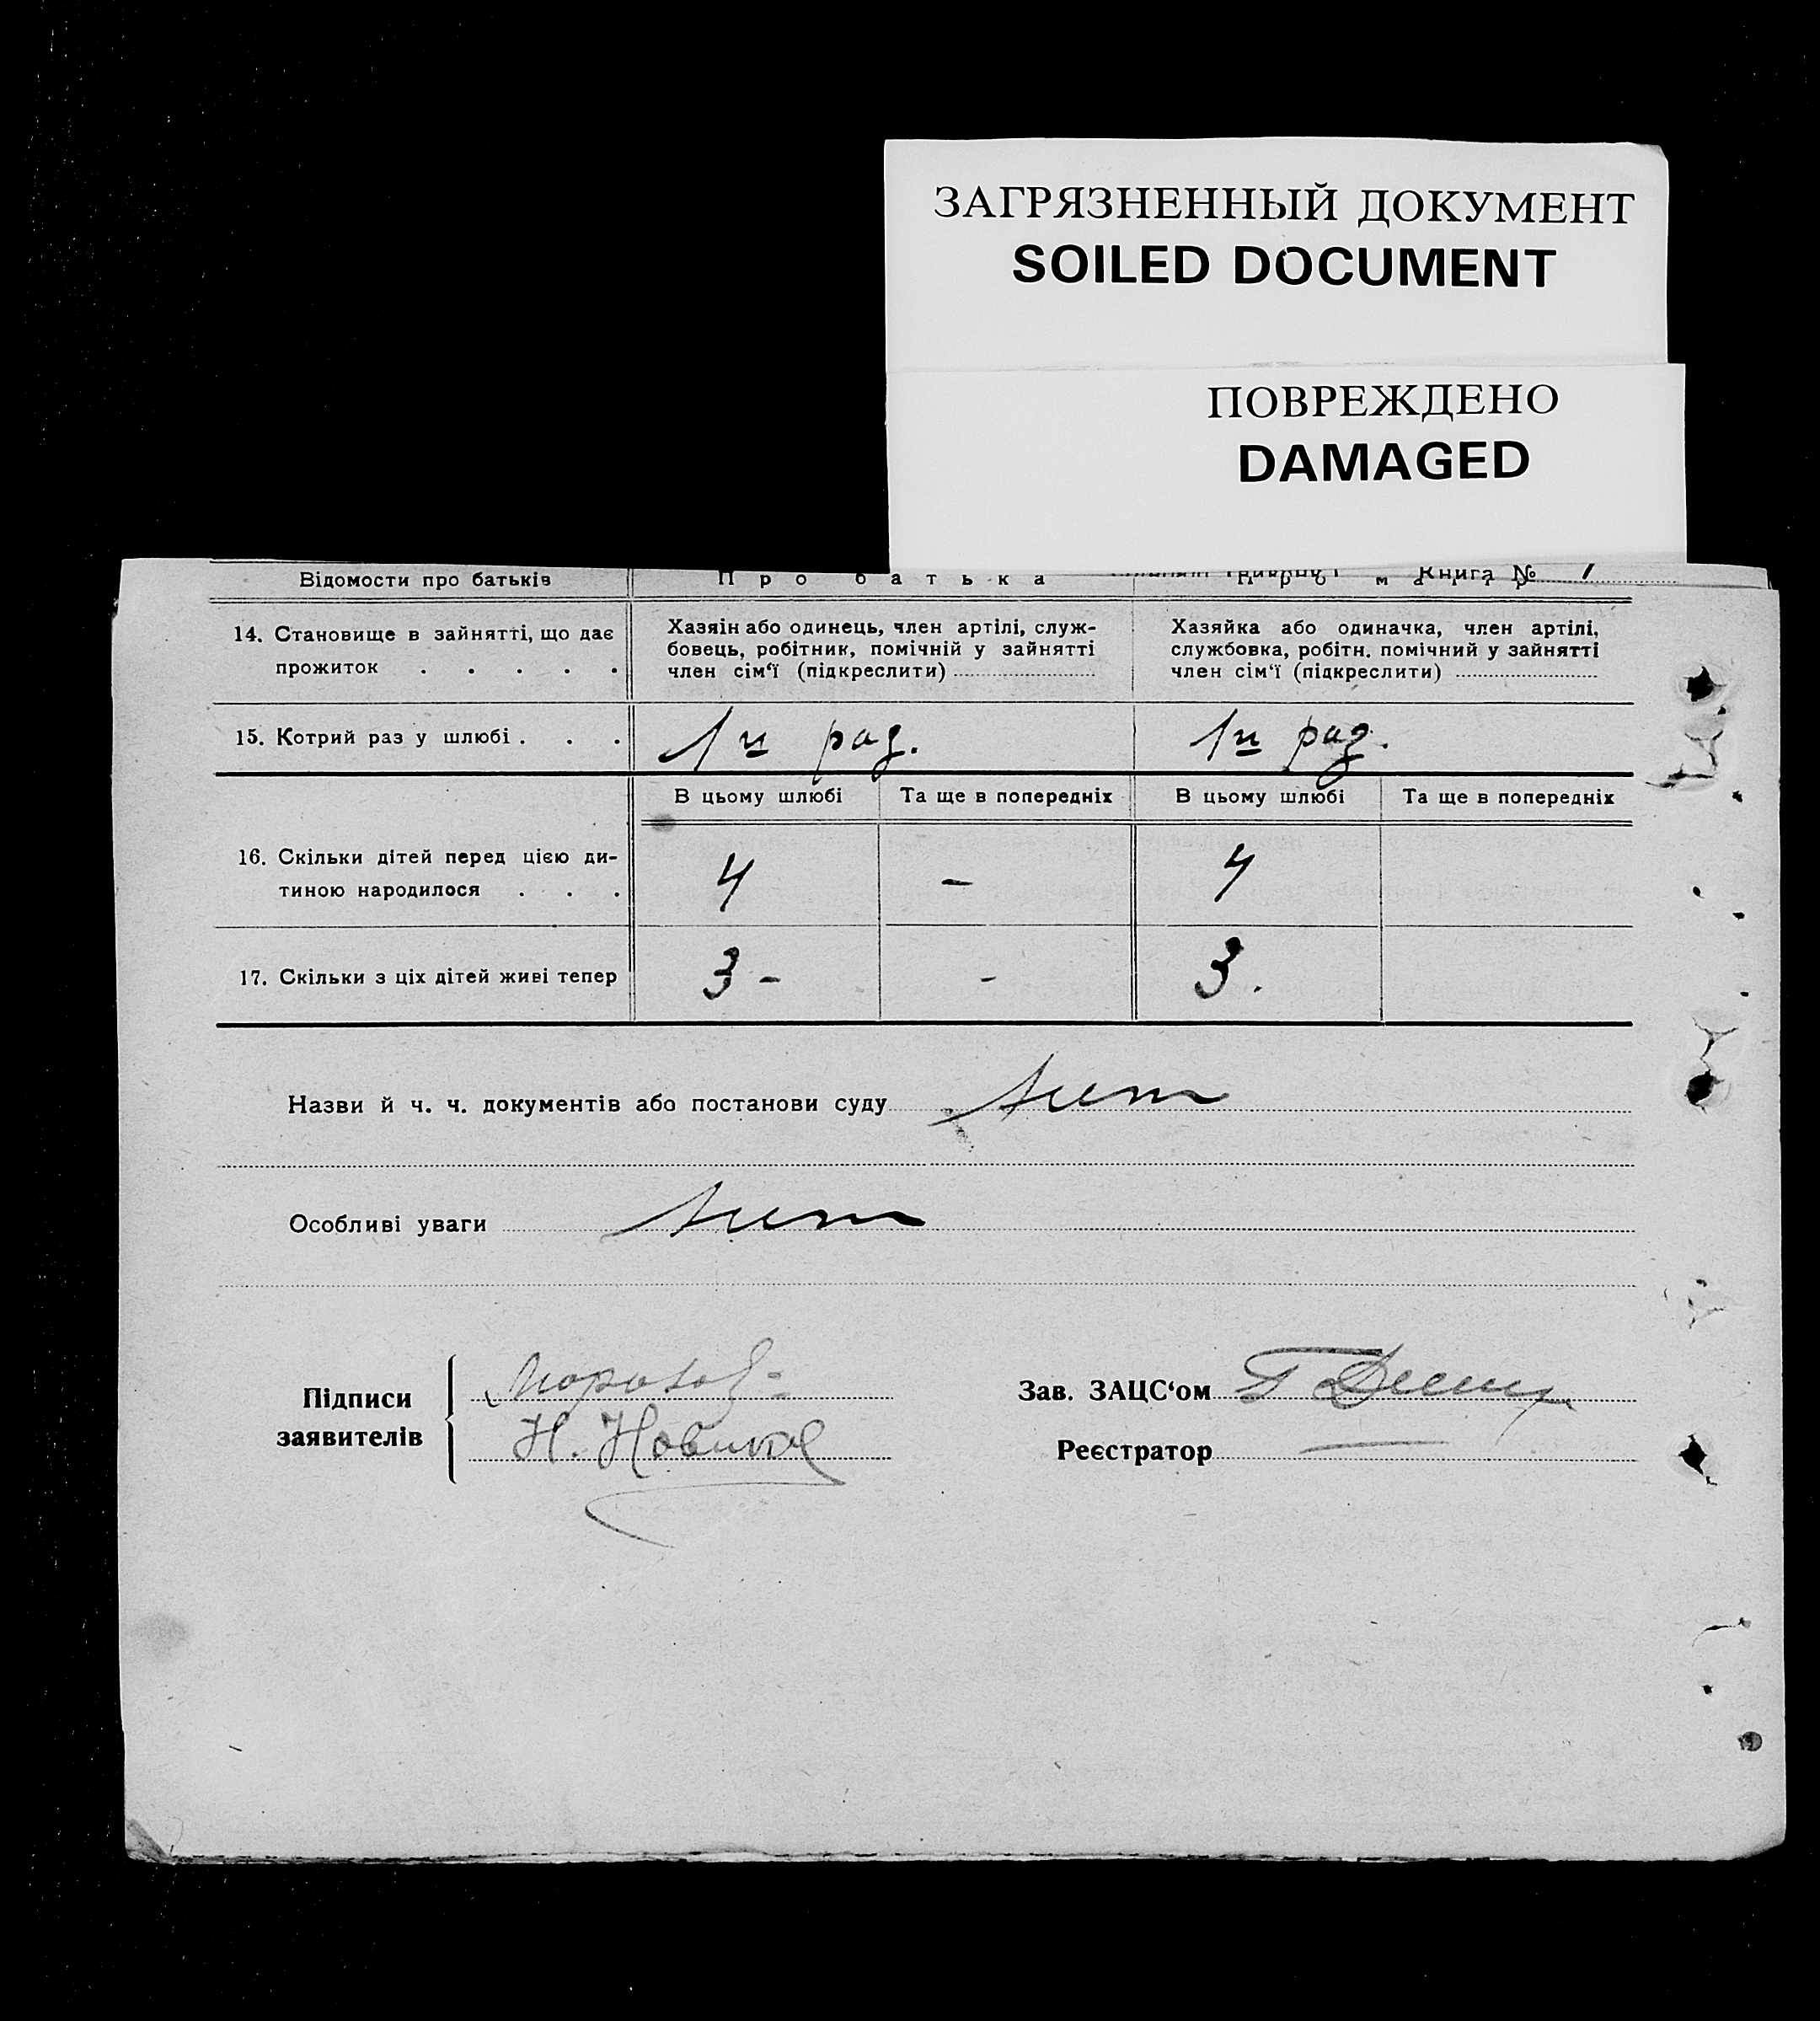 ЗАГРЯЗНЕННЫЙ ДОКУМЕНТ
SOILED DOCUMENT
ПОВРЕЖДЕНО
DAMAGED
Книга № 1
Відомости про батьків Про батька
14. Становище в зайнятті, що дає
прожиток . . . . .
Хазяін або одинець, член артілі, служ-
бовець, робітник, помічній у зайнятті
член сім‘ї (підкреслити)
Хазяйка або одиначка, член артілі,
службовка, робітн. помічний у зайнятті
член сім‘ї (підкреслити)
15. Котрий раз у шлюбі . . . 1й раз. 1й раз.
В цьому шлюбі Та ще в попередніх В цьому шлюбі Та ще в попередніх
16. Скільки дітей перед цією ди-
тиною народилося . . . 4 – 4
17. Скільки з ціх дітей живі тепер 3 - - 3.
Назви й ч. ч. документів або постанови суду
Особливі уваги
Підписи
заявителів
Н. Новиков
Зав. ЗАЦС‘ом
Реєстратор —